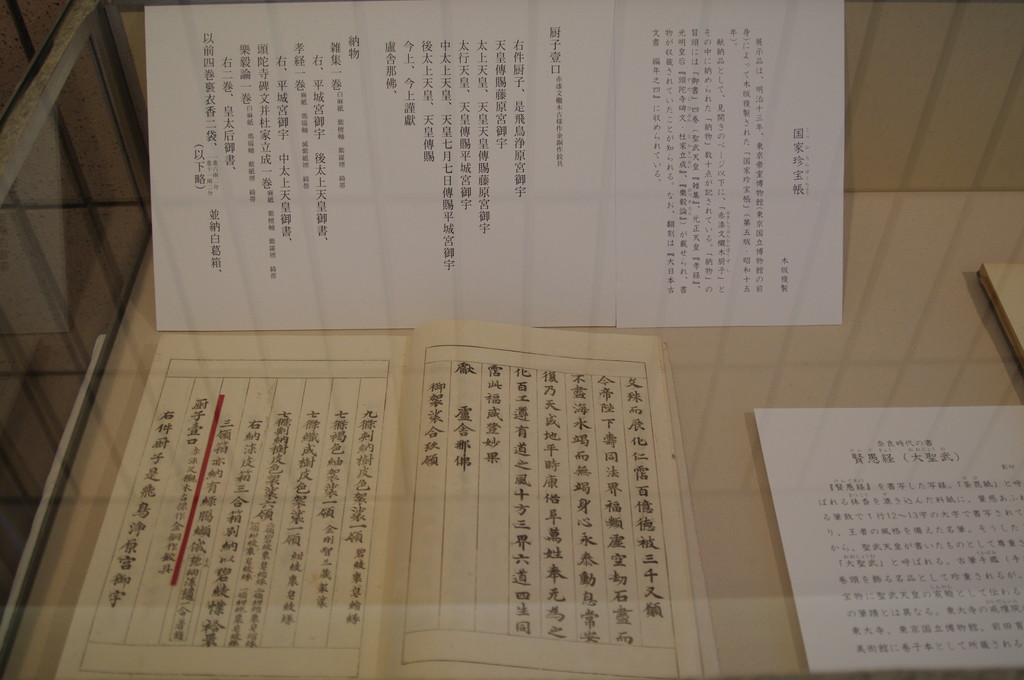 国家珍宝帳
木版複製
展示品は、明治十三年、東京帝室博物館(東京国立博物館の前
身)によって木版複製された「国家珍宝帳」(第五版 昭和十五
年)。
献納品として、見開きのページ以下に、「赤漆文欟木厨子」と
その中に納められた「納物」数十点が記されている。「納物」の
冒頭には「御書」四巻(聖武天皇『雑集』、元正天皇『孝経』、
光明皇后『頭陀寺碑文 杜家立成』、『楽毅論』)が載せられ、書
物が収蔵されていたことが知られる。なお、翻刻は『大日本古
文書 編年之四』に収められている。
厨子壹口 赤漆文欟木古様作金銅作鉸具
右件厨子、是飛鳥浄原宮御宇
天皇傳賜藤原宮御宇
太上天皇、天皇天皇傳賜藤原宮御宇
太行天皇、天皇傳賜平城宮御宇
中太上天皇、天皇七月七日傳賜平城宮御宇
後太上天皇、天皇傳賜
今上、今上謹獻
盧舎那佛、
納物
雑集一巻 白麻紙 紫檀軸 紫羅褾 綺帯
右、平城宮御宇 後太上天皇御書、
孝経一巻
右、平城宮御宇 中太上天皇御書、
頭陀寺碑文并杜家立成一巻
樂毅論一巻
右二巻、皇太后御書、
以前四巻裹衣香二袋、 並納白葛箱、
(以下略)
文殊而展化仁霑百億徳被三千又願
今帝陛下壽同法界福類虚空劫石盡而
不盡海水竭而無竭身心永泰動息常安
復乃天成地平時康俗阜萬姓奉无為之
化百工遵有道之風十方三界六道四生同
霑此福咸登妙果
獻 盧舎那佛
御袈裟合玖領
九條刺納樹皮色袈裟一領
七條褐色紬袈裟一領
七條織成樹皮色袈裟一領
七條刺納樹皮色袈裟六領
右納漆皮箱三合箱別納以碧綾幞袷
厨子壹口 赤漆文欟木古様作金銅作鉸具
右件厨子是飛鳥浄原宮御宇
奈良時代の書
賢愚経(大聖武)
『賢愚経』を書写した写経。「荼毘紙」と呼
ばれる抹香を漉き込んだ料紙に、量感あふれ
る筆致で1行12〜13字の大字で書写されて
り、王者の風格を備えた名筆。そうした
から、聖武天皇が書いたものとして尊重さ
「大聖武」と呼ばれる。古筆手鑑(手
巻頭を飾る名品として珍重されるが、
宝物に聖武天皇の宸翰として伝わる
の筆蹟とは異なる。東大寺の戒壇院
東大寺、東京国立博物館、前田育
美術館に巻子本として所蔵される